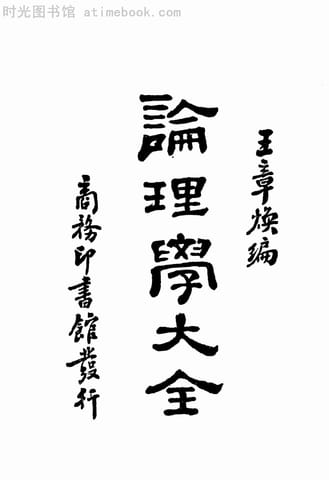 时光图书馆 atimebook.com
王章焕编
論理學大全
商務印書館發行